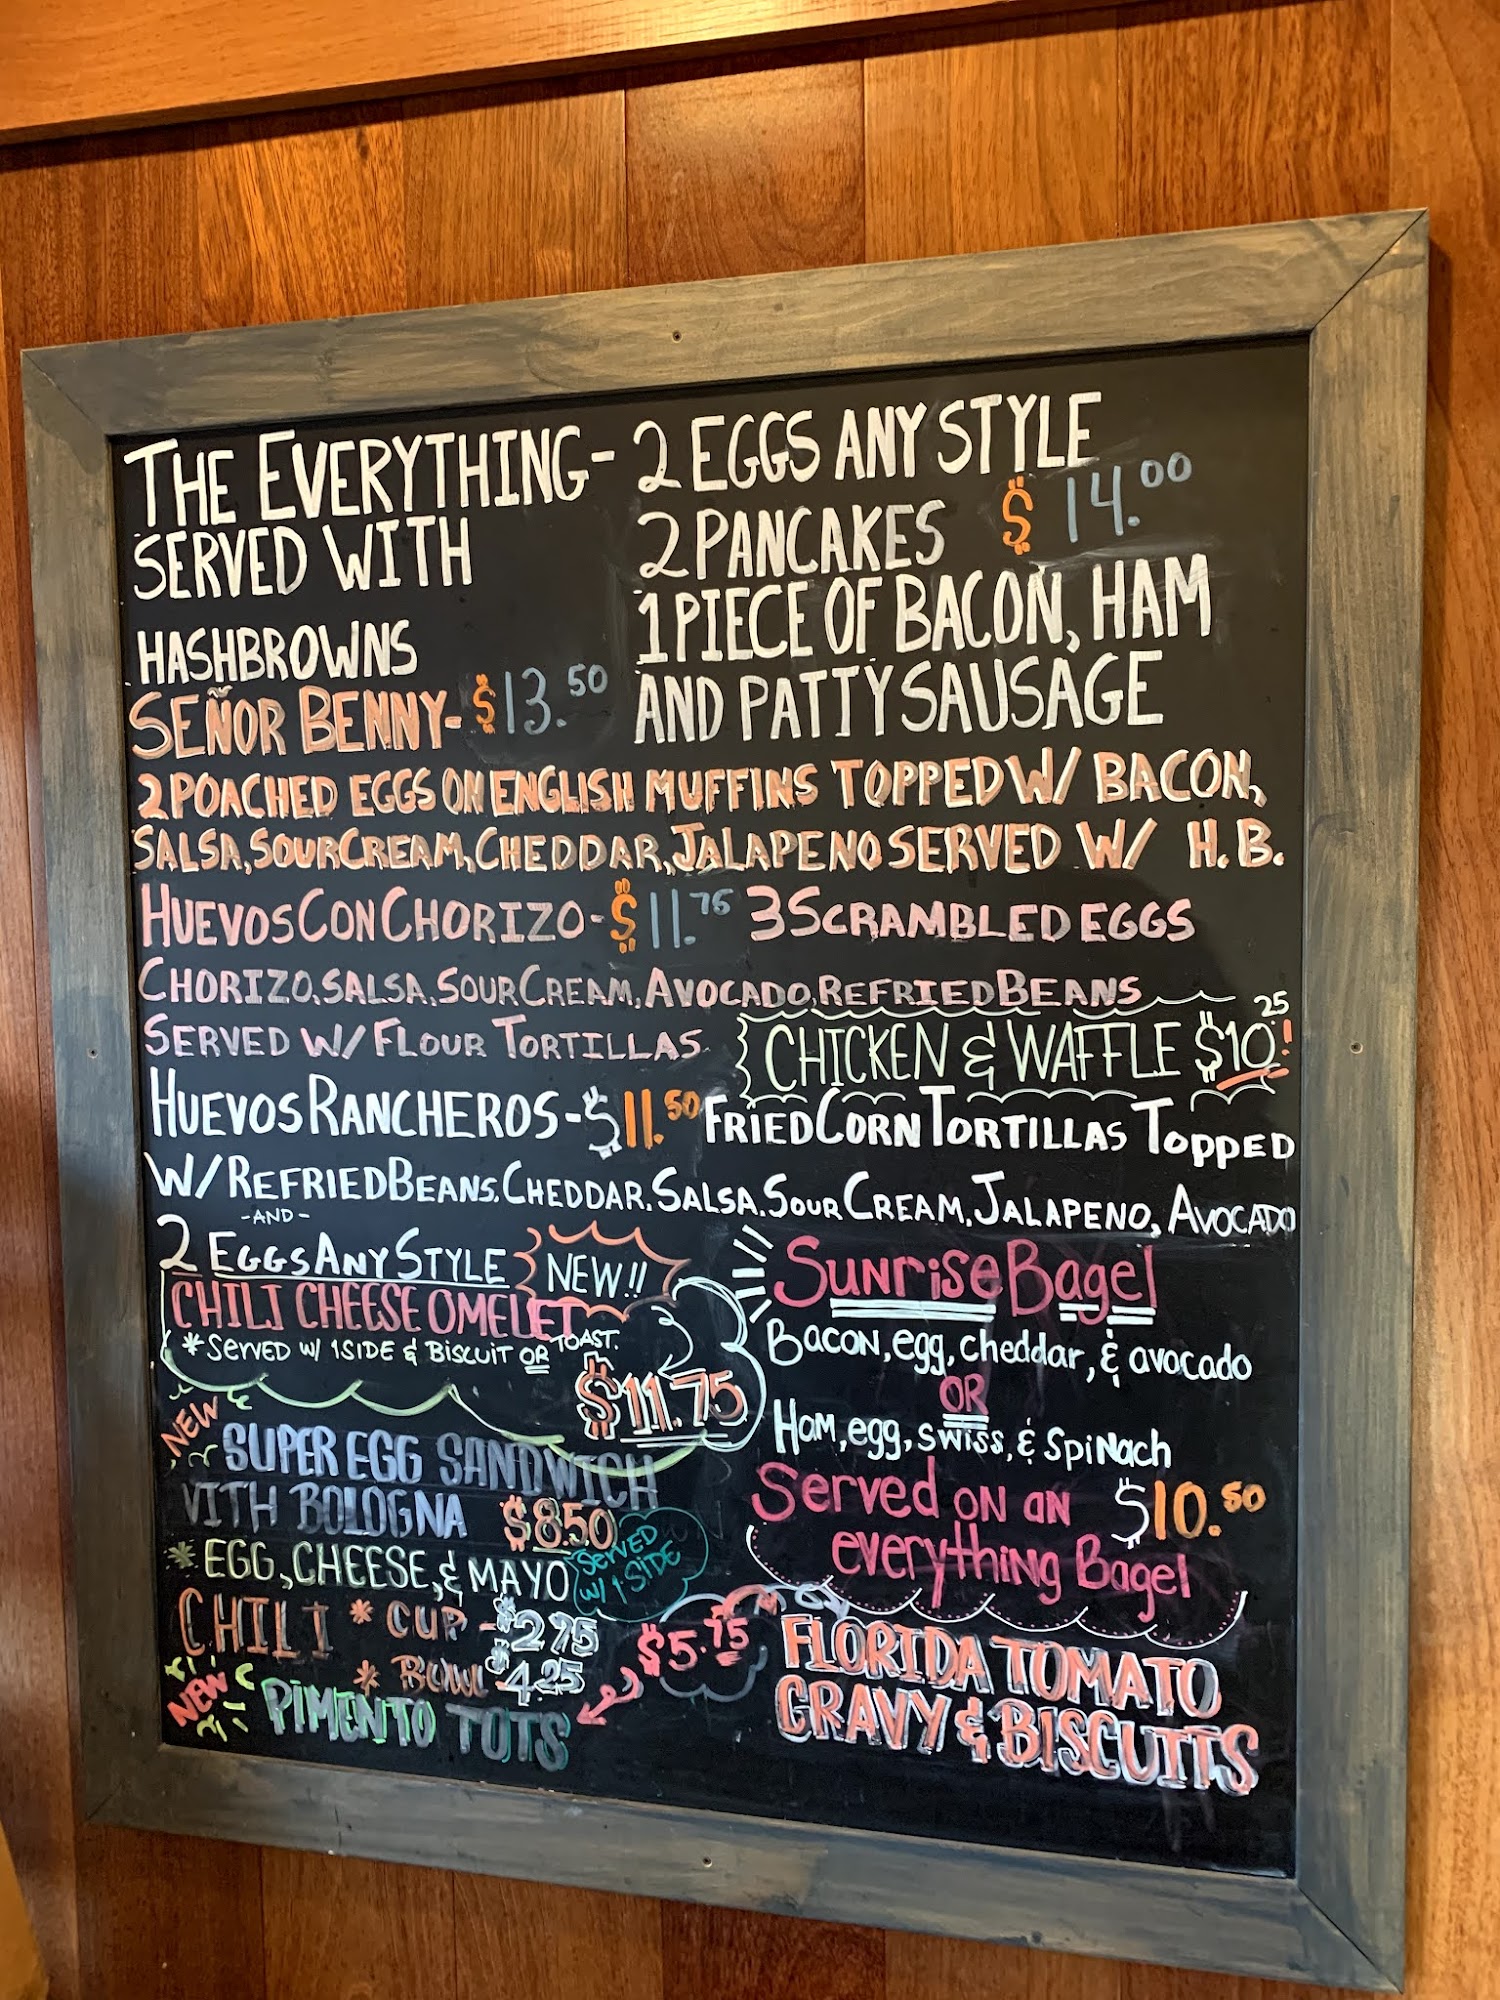 THE EVERYTHING- 2 EGGS ANY STYLE
SERVED WITH 2 PANCAKES $14.00
HASHBROWNS 1 PIECE OF BACON, HAM
AND PATTY SAUSAGE
SEÑOR BENNY- $13.50
2 POACHED EGGS ON ENGLISH MUFFINS TOPPED W/ BACON,
SALSA, SOUR CREAM, CHEDDAR, JALAPENO SERVED W/ H.B.
HUEVOS CON CHORIZO- $11.75 3 SCRAMBLED EGGS
CHORIZO, SALSA, SOUR CREAM, AVOCADO, REFRIED BEANS
SERVED W/ FLOUR TORTILLAS
CHICKEN & WAFFLE $10.25!
HUEVOS RANCHEROS- $11.50 FRIED CORN TORTILLAS TOPPED
W/ REFRIED BEANS, CHEDDAR, SALSA, SOUR CREAM, JALAPENO, AVOCADO
-AND-
2 EGGS ANY STYLE
NEW!!
CHILI CHEESE OMELET
*SERVED W/ 1 SIDE & BISCUIT OR TOAST.
$11.75
Sunrise Bagel
Bacon, egg, cheddar, & avocado
OR
Ham, egg, swiss, & spinach
Served on an $10.50
everything Bagel
NEW
SUPER EGG SANDWICH
VITH BOLOGNA $8.50
*EGG, CHEESE, & MAYO
SERVED
W/ 1 SIDE
CHILI * CUP -$2.75
* BOWL $4.25
NEW
PIMENTO TOTS
$5.75
FLORIDA TOMATO
GRAVY & BISCUITS